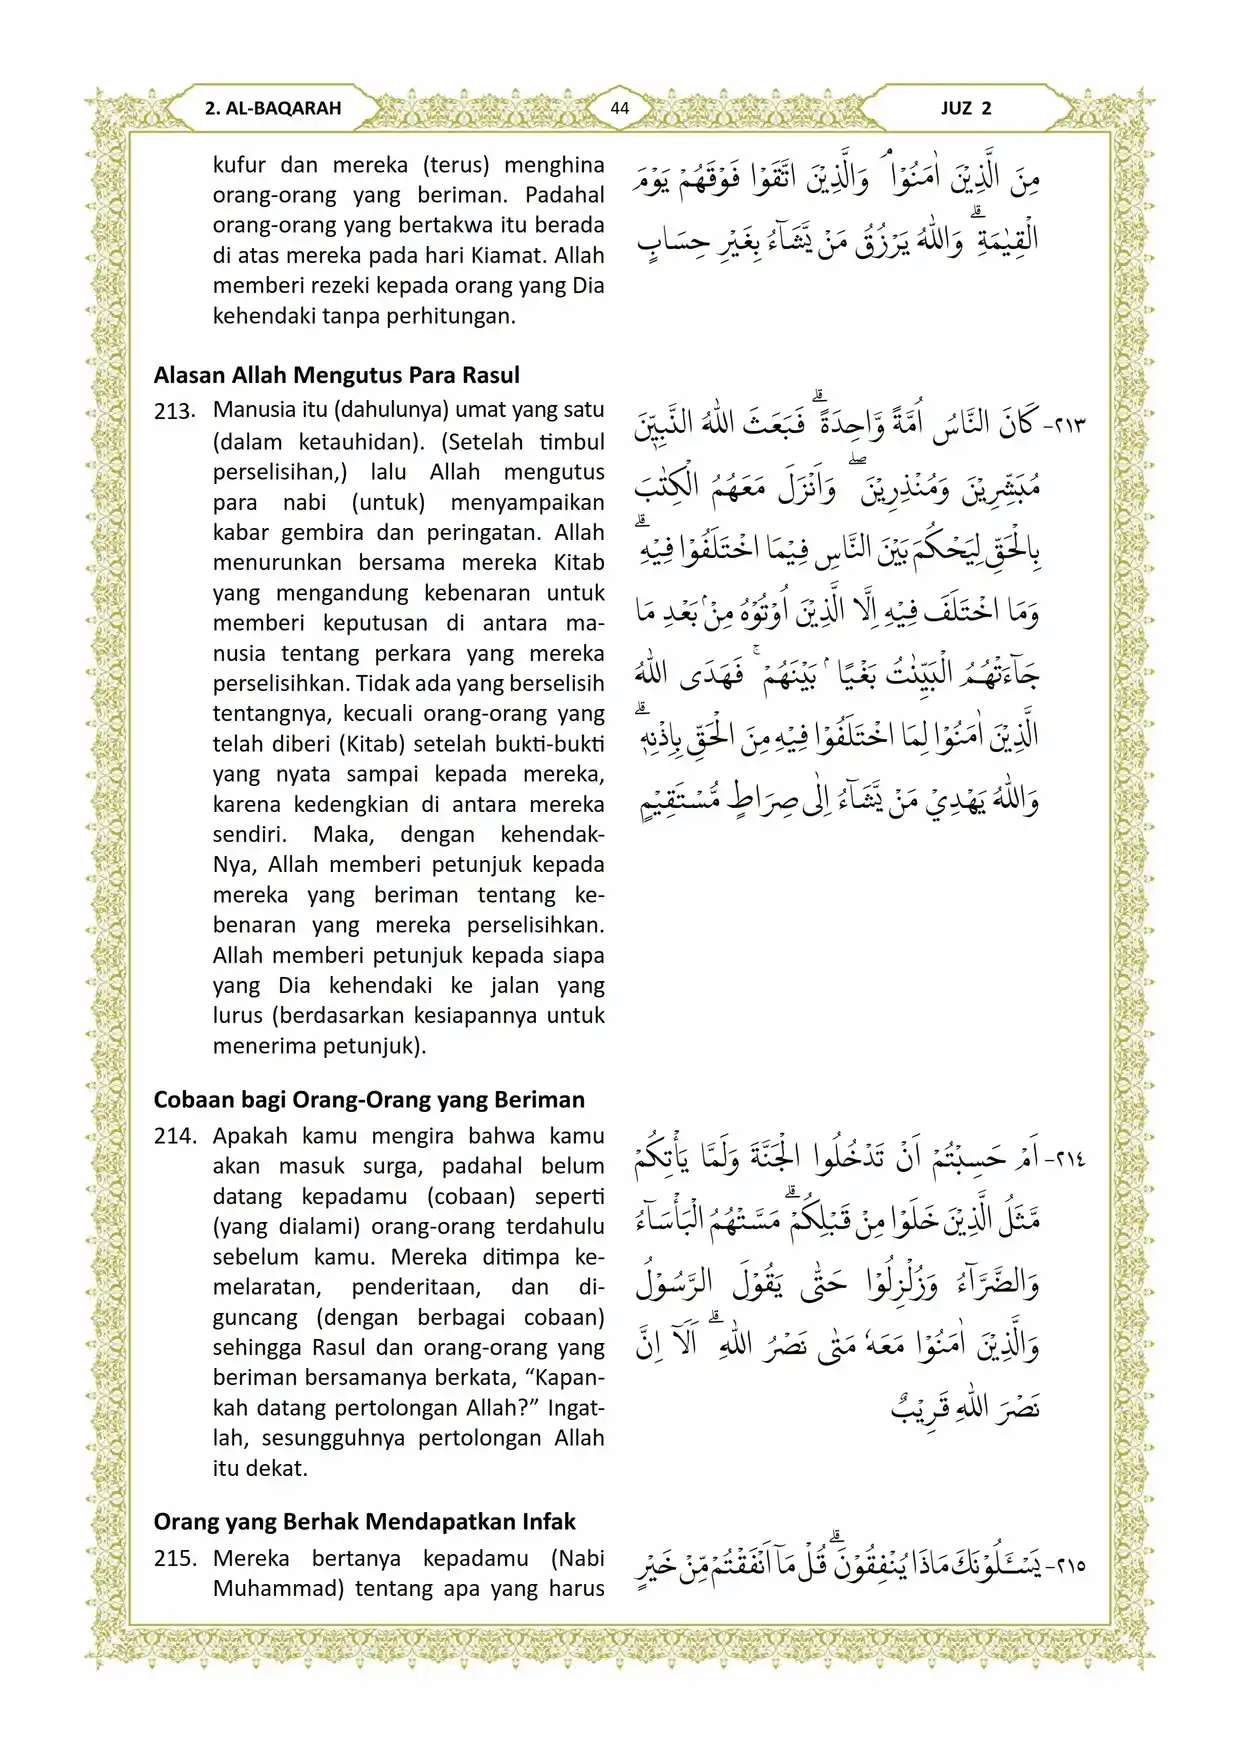 2. AL-BAQARAH
44
JUZ 2
kufur dan mereka (terus) menghina
orang-orang yang beriman. Padahal
orang-orang yang bertakwa itu berada
di atas mereka pada hari Kiamat. Allah
memberi rezeki kepada orang yang Dia
kehendaki tanpa perhitungan.
مِنَ الَّذِيْنَ اٰمَنُوْا ۘ وَالَّذِيْنَ اتَّقَوْا فَوْقَهُمْ يَوْمَ
الْقِيٰمَةِ ۗ وَاللّٰهُ يَرْزُقُ مَنْ يَّشَاۤءُ بِغَيْرِ حِسَابٍ
Alasan Allah Mengutus Para Rasul
213. Manusia itu (dahulunya) umat yang satu
(dalam ketauhidan). (Setelah timbul
perselisihan,) lalu Allah mengutus
para nabi (untuk) menyampaikan
kabar gembira dan peringatan. Allah
menurunkan bersama mereka Kitab
yang mengandung kebenaran untuk
memberi keputusan di antara ma-
nusia tentang perkara yang mereka
perselisihkan. Tidak ada yang berselisih
tentangnya, kecuali orang-orang yang
telah diberi (Kitab) setelah bukti-bukti
yang nyata sampai kepada mereka,
karena kedengkian di antara mereka
sendiri. Maka, dengan kehendak-
Nya, Allah memberi petunjuk kepada
mereka yang beriman tentang ke-
benaran yang mereka perselisihkan.
Allah memberi petunjuk kepada siapa
yang Dia kehendaki ke jalan yang
lurus (berdasarkan kesiapannya untuk
menerima petunjuk).
٢١٣- كَانَ النَّاسُ اُمَّةً وَّاحِدَةً ۗ فَبَعَثَ اللّٰهُ النَّبِيّٖنَ
مُبَشِّرِيْنَ وَمُنْذِرِيْنَ ۖ وَاَنْزَلَ مَعَهُمُ الْكِتٰبَ
بِالْحَقِّ لِيَحْكُمَ بَيْنَ النَّاسِ فِيْمَا اخْتَلَفُوْا فِيْهِ ۗ
وَمَا اخْتَلَفَ فِيْهِ اِلَّا الَّذِيْنَ اُوْتُوْهُ مِنْۢ بَعْدِ مَا
جَاۤءَتْهُمُ الْبَيِّنٰتُ بَغْيًا ۢ بَيْنَهُمْ ۚ فَهَدَى اللّٰهُ
الَّذِيْنَ اٰمَنُوْا لِمَا اخْتَلَفُوْا فِيْهِ مِنَ الْحَقِّ بِاِذْنِهٖ ۗ
وَاللّٰهُ يَهْدِيْ مَنْ يَّشَاۤءُ اِلٰى صِرَاطٍ مُّسْتَقِيْمٍ
Cobaan bagi Orang-Orang yang Beriman
214. Apakah kamu mengira bahwa kamu
akan masuk surga, padahal belum
datang kepadamu (cobaan) seperti
(yang dialami) orang-orang terdahulu
sebelum kamu. Mereka ditimpa ke-
melaratan, penderitaan, dan di-
guncang (dengan berbagai cobaan)
sehingga Rasul dan orang-orang yang
beriman bersamanya berkata, “Kapan-
kah datang pertolongan Allah?” Ingat-
lah, sesungguhnya pertolongan Allah
itu dekat.
٢١٤- اَمْ حَسِبْتُمْ اَنْ تَدْخُلُوا الْجَنَّةَ وَلَمَّا يَأْتِكُمْ
مَّثَلُ الَّذِيْنَ خَلَوْا مِنْ قَبْلِكُمْ ۗ مَسَّتْهُمُ الْبَأْسَاۤءُ
وَالضَّرَّاۤءُ وَزُلْزِلُوْا حَتّٰى يَقُوْلَ الرَّسُوْلُ
وَالَّذِيْنَ اٰمَنُوْا مَعَهٗ مَتٰى نَصْرُ اللّٰهِ ۗ اَلَآ اِنَّ
نَصْرَ اللّٰهِ قَرِيْبٌ
Orang yang Berhak Mendapatkan Infak
215. Mereka bertanya kepadamu (Nabi
Muhammad) tentang apa yang harus
٢١٥- يَسْـَٔلُوْنَكَ مَاذَا يُنْفِقُوْنَ ۗ قُلْ مَآ اَنْفَقْتُمْ مِّنْ خَيْرٍ